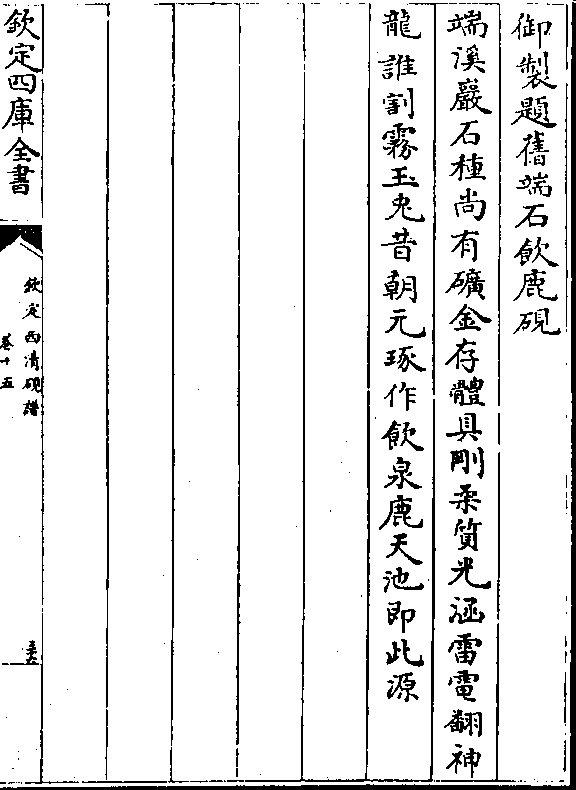 御製題舊端石飲鹿硯
端溪巖石種尚有礦金存體具剛柔質光涵雷電翻神
龍誰割霧玉兎昔朝元琢作飲泉鹿天池即此源
欽定四庫全書
欽定西清硯譜
卷十五